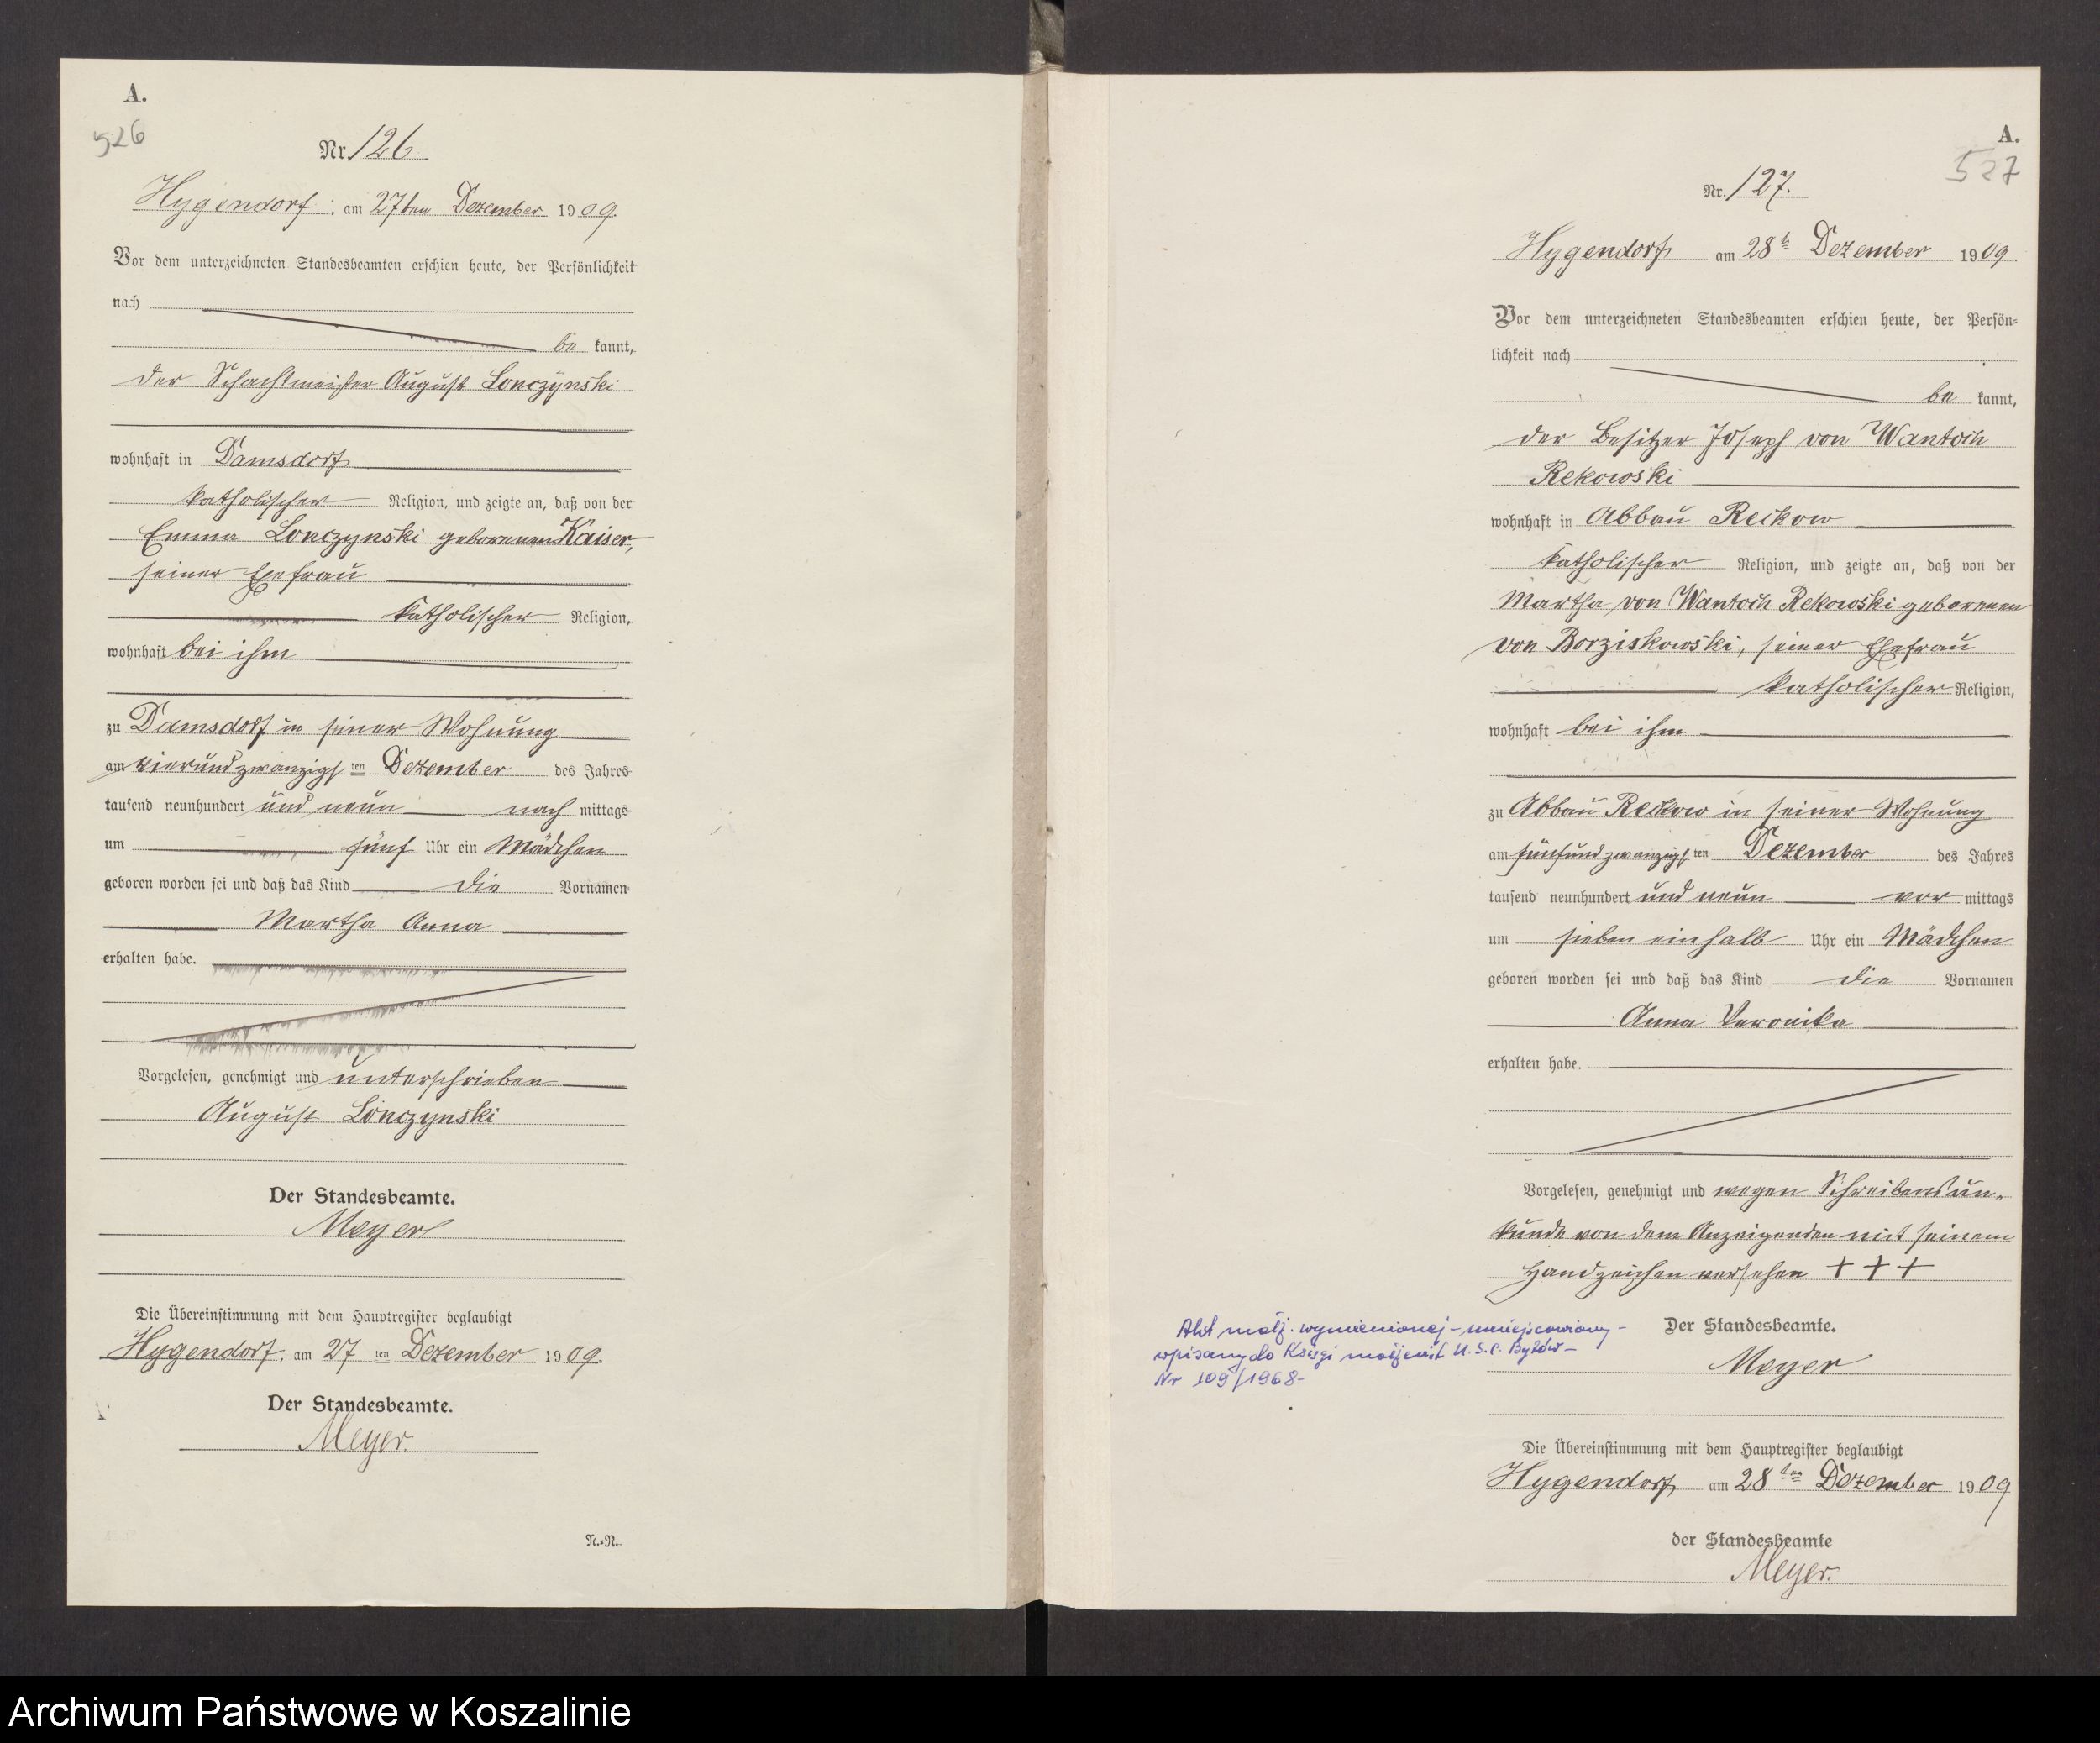 A.
526
Nr. 126
Hygendorf, am 27ten Dezember 1909.
Vor dem unterzeichneten Standesbeamten erschien heute, der Persönlichkeit
nach
be kannt,
der Schachtmeister August Lonczynski
wohnhaft in Damsdorf
katholischer Religion, und zeigte an, daß von der
Emma Lonczynski geborenen Kaiser,
seiner Ehefrau
katholischer Religion,
wohnhaft bei ihm
zu Damsdorf in seiner Wohnung
am vierundzwanzigsten Dezember des Jahres
tausend neunhundert und neun nach mittags
um fünf Uhr ein Mädchen
geboren worden sei und daß das Kind die Vornamen
Martha Anna
erhalten habe.
Vorgelesen, genehmigt und unterschrieben
August Lonczynski
Der Standesbeamte.
Meyer
Die Übereinstimmung mit dem Hauptregister beglaubigt
Hygendorf, am 27 ten Dezember 1909.
Der Standesbeamte.
Meyer.
N.-R.
A.
527
Nr. 127.
Hygendorf am 28t Dezember 1909.
Vor dem unterzeichneten Standesbeamten erschien heute, der Persön-
lichkeit nach
be kannt,
der Besitzer Joseph von Wantoch
Rekowski
wohnhaft in Abbau Reckow
katholischer Religion, und zeigte an, daß von der
Martha von Wantoch Rekowski geborenen
von Borziskowski, seiner Ehefrau
katholischer Religion,
wohnhaft bei ihm
zu Abbau Reckow in seiner Wohnung
am fünfundzwanzigsten Dezember des Jahres
tausend neunhundert und neun vor mittags
um sieben einhalb Uhr ein Mädchen
geboren worden sei und daß das Kind die Vornamen
Anna Veronika
erhalten habe.
Vorgelesen, genehmigt und wegen Schreibensun-
kunde von dem Anzeigenden mit seinem
Handzeichen versehen + + +
Akt małż. wymienionej - umiejscowiony -
wpisany do Księgi małżeństw U.S.C. Bytów -
Nr 109/1968 -
Der Standesbeamte.
Meyer
Die Übereinstimmung mit dem Hauptregister beglaubigt
Hygendorf am 28ten Dezember 1909
der Standesbeamte
Meyer.
Archiwum Państwowe w Koszalinie